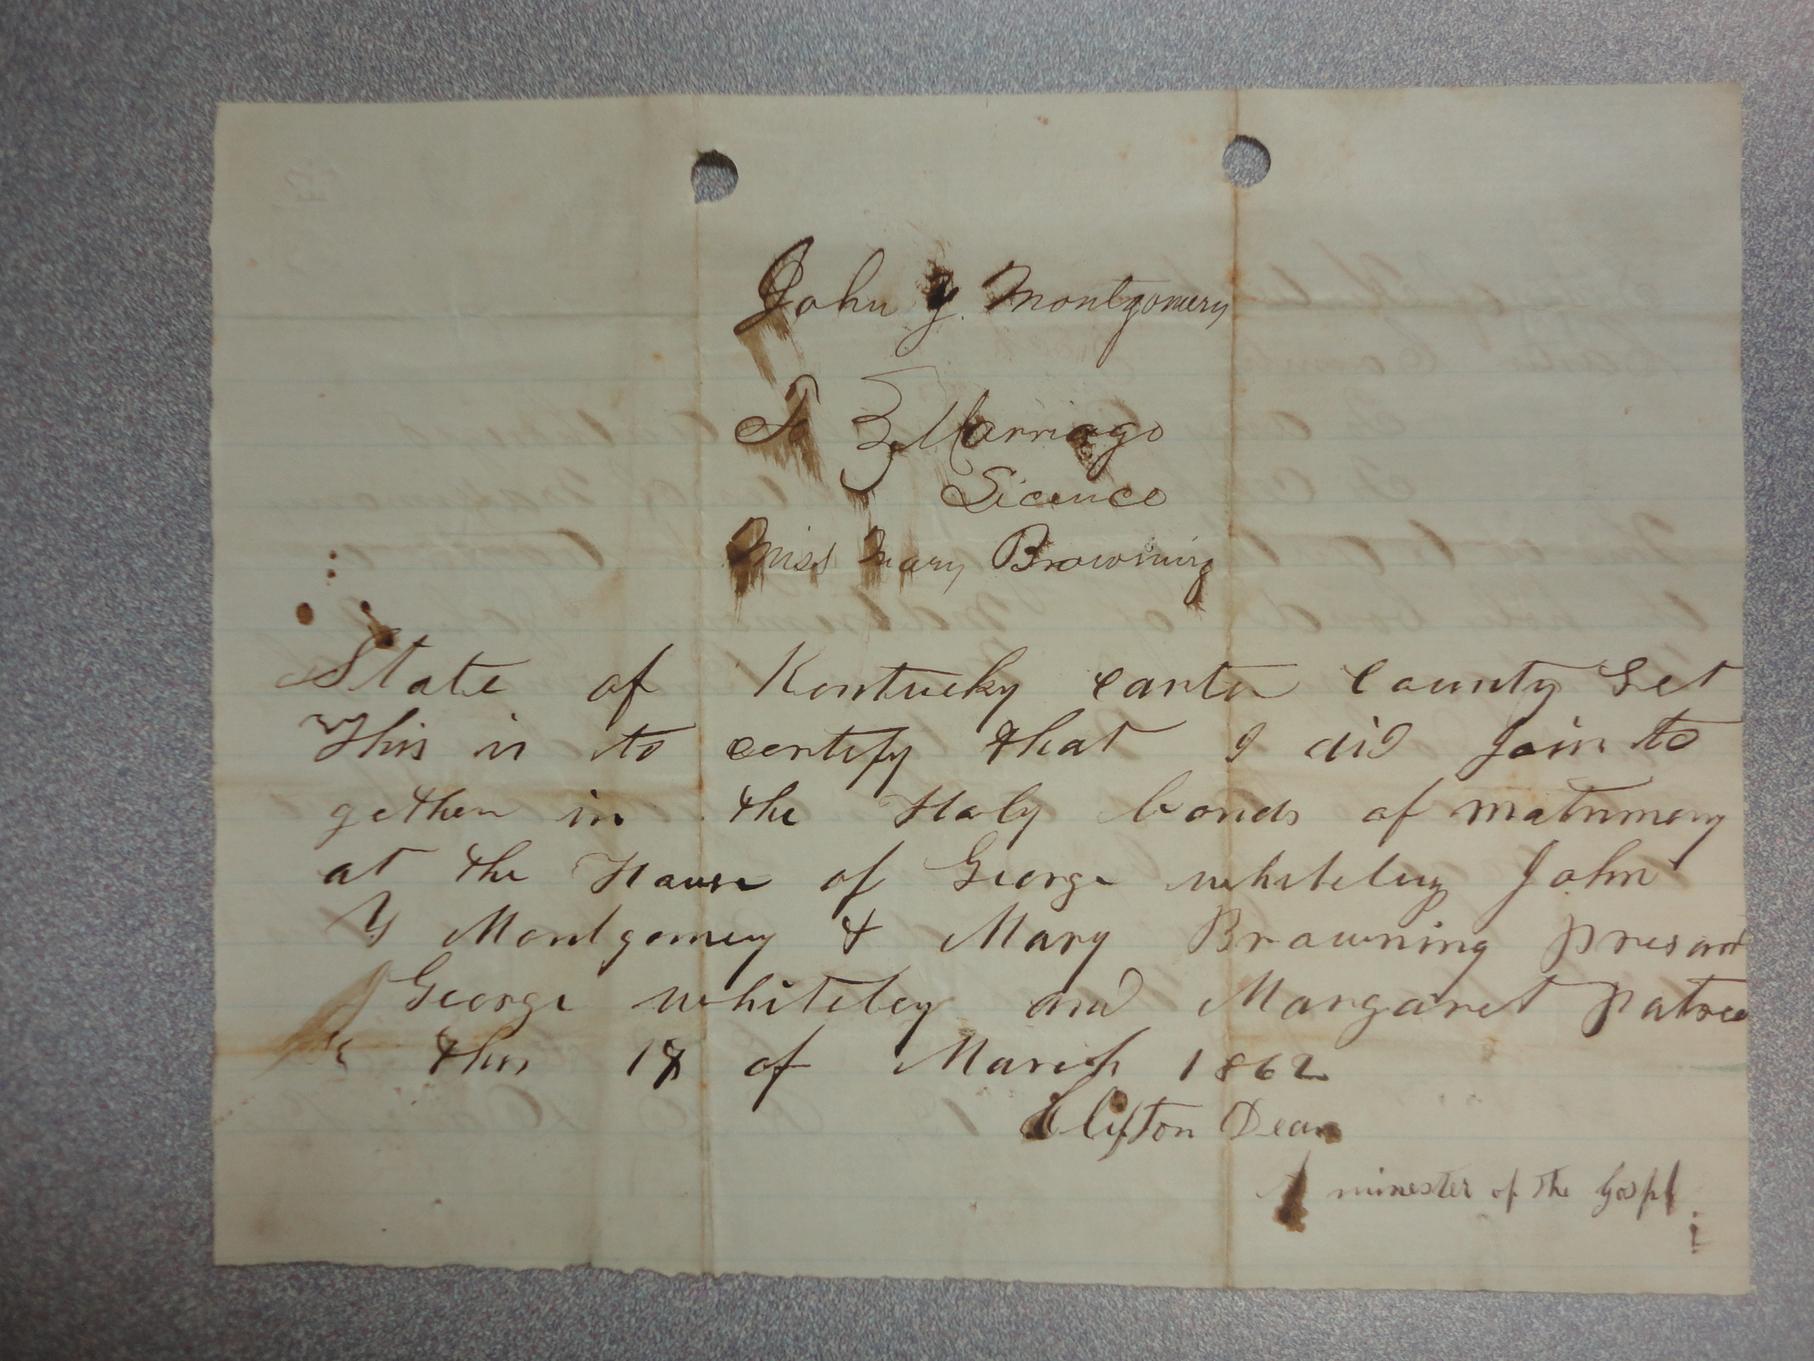 John Y. Montgomery
To } Marriage
Licence
Miss Mary Browning
State of Kentucky Carter County Set
This is to certify that I did join to
gether in the Holy bonds of matrimony
at the House of George whiteley John
Y Montgomery & Mary Browning present
George whiteley and Margaret
this 17 of March 1862
Clifton Dean
A minester of the Gospl